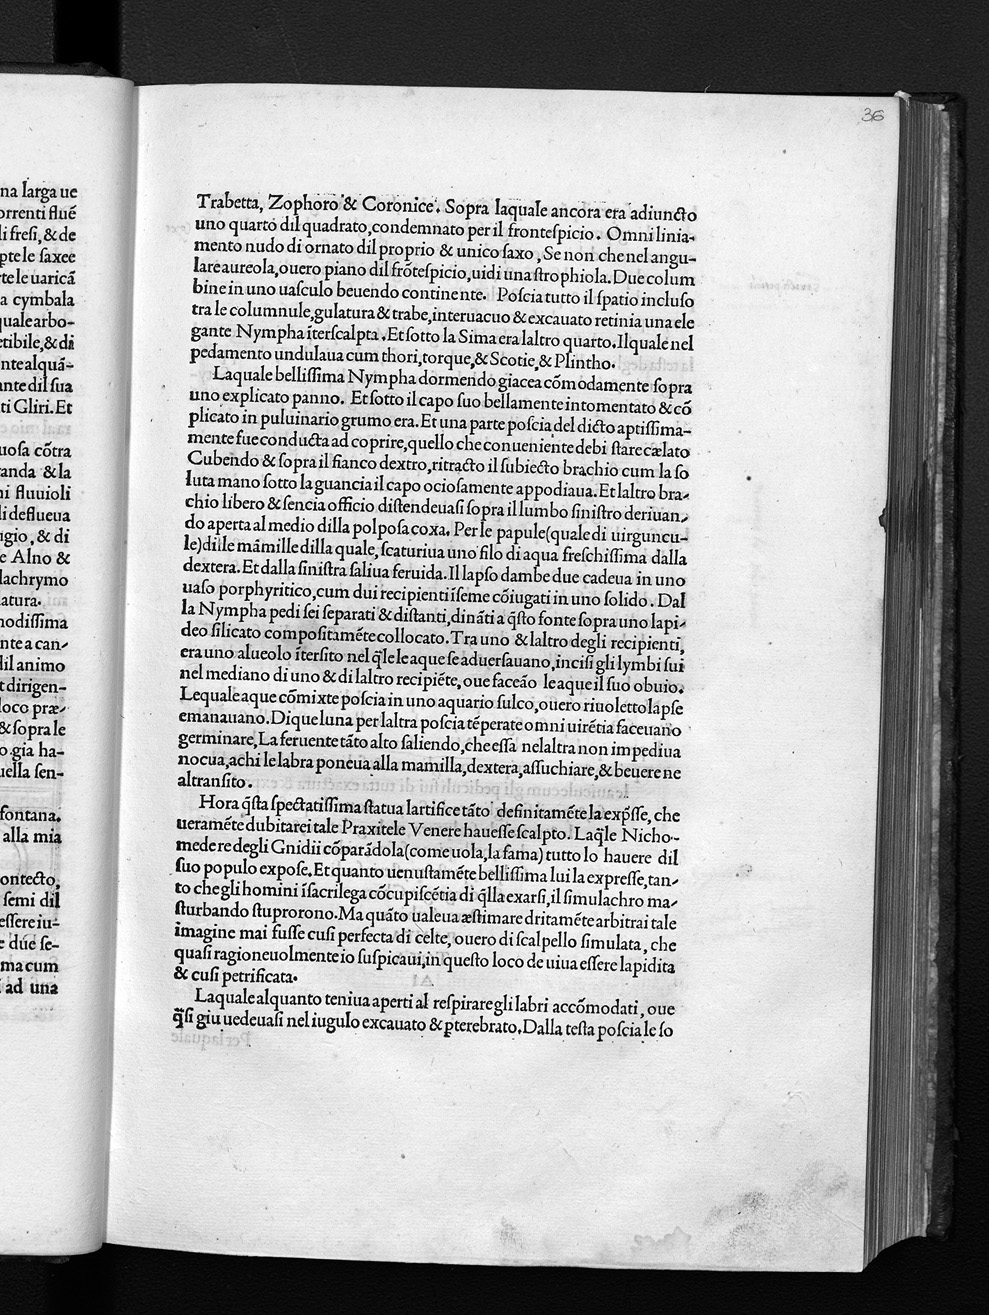 na larga ue
orrenti flué
li fresi, & de
pte le saxee
rte le uaricã
a cymbala
quale arbo-
etibile, & di
nte alquã-
ante dil sua
ti Gliri. Et
uosa cõtra
anda & la
ni fluuioli
li deflueua
igio, & di
e Alno &
lachrymo
atura.
nodissima
nte a can-
dil animo
t dirigen-
loco præ-
& sopra le
o gia ha-
uella sen-
fontana.
alla mia
ontecto,
semi dil
essere iu-
e due se-
ma cum
i ad una
36
Trabetta, Zophoro & Coronice. Sopra laquale ancora era adiuncto
uno quarto dil quadrato, condemnato per il frontespicio. Omni linia-
mento nudo di ornato dil proprio & unico saxo, Se non che nel angu-
lare aureola, ouero piano dil frõtespicio, uidi una strophiola. Due colum
bine in uno uasculo beuendo continente. Poscia tutto il spatio incluso
tra le columnule, gulatura & trabe, interuacuo & excauato retinia una ele
gante Nympha ĩterscalpta. Et sotto la Sima era laltro quarto. Ilquale nel
pedamento undulaua cum thori, torque, & Scotie, & Plintho.
Laquale bellissima Nympha dormendo giacea cõmodamente sopra
uno explicato panno. Et sotto il capo suo bellamente intomentato & cõ
plicato in puluinario grumo era. Et una parte poscia del dicto aptissima-
mente fue conducta ad coprire, quello che conueniente debi stare cælato
Cubendo & sopra il fianco dextro, ritracto il subiecto brachio cum la so
luta mano sotto la guancia il capo ociosamente appodiaua. Et laltro bra-
chio libero & sencia officio distendeuasi sopra il lumbo sinistro deriuan-
do aperta al medio dilla polposa coxa. Per le papule (quale di uirguncu-
le) dille mãmille dilla quale, scaturiua uno filo di aqua freschissima dalla
dextera. Et dalla sinistra saliua feruida. Il lapso dambe due cadeua in uno
uaso porphyritico, cum dui recipienti ĩseme cõiugati in uno solido. Dal
la Nympha pedi sei separati & distanti, dinãti a q̃sto fonte sopra uno lapi-
deo silicato compositamẽte collocato. Tra uno & laltro degli recipienti,
era uno alueolo ĩtersito nel q̃le le aque se aduersauano, incisi gli lymbi sui
nel mediano di uno & di laltro recipiẽte, oue faceão le aque il suo obuio.
Le quale aque cõmixte poscia in uno aquario sulco, ouero riuoletto lapse
emanauano. Di que luna per laltra poscia tẽperate omni uirẽtia faceuano
germinare, La feruente tãto alto saliendo, che essa nelaltra non impediua
nocua, achi le labra poneua alla mamilla, dextera, assuchiare, & beuere ne
altransito.
Hora q̃sta spectatissima statua lartifice tãto definitamẽte la exp̃sse, che
ueramẽte dubitarei tale Praxitele Venere hauesse scalpto. Laq̃le Nicho-
mede re degli Gnidii cõparãdola (come uola, la fama) tutto lo hauere dil
suo populo expose, Et quanto uenustamẽte bellissima lui la expresse, tan-
to che gli homini ĩ sacrilega cõcupiscẽtia di q̃lla exarsi, il simulachro ma-
sturbando stuprorono. Ma quãto ualeua æstimare dritamẽte arbitrai tale
imagine mai fusse cusi perfecta di celte, ouero di scalpello simulata, che
quasi ragioneuolmente io suspicaui, in questo loco de uiua essere lapidita
& cusi petrificata.
Laquale alquanto teniua aperti al respirare gli labri accõmodati, oue
q̃si giu uedeuasi nel iugulo excauato & ꝑterebrato. Dalla testa poscia le so